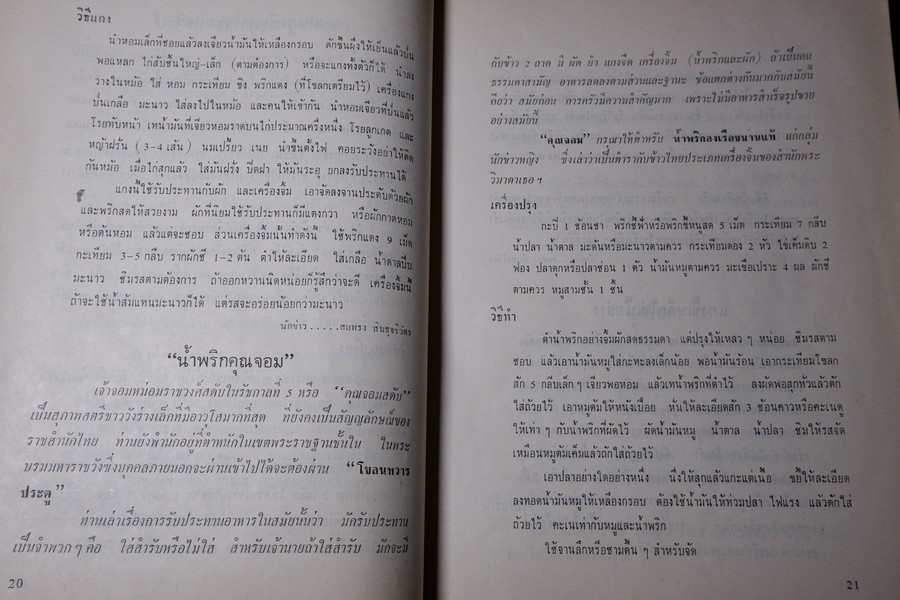 วิธีแกง
นำหอมเล็กที่ซอยแล้วลงเจียวน้ำมันให้เหลืองกรอบ ตักขึ้นผึ่งให้เย็นแล้วป่น
พอแหลก ไก่สับชิ้นใหญ่-เล็ก (ตามต้องการ) หรือจะแกงทั้งตัวก็ได้ นำลง
วางในหม้อ ใส่ หอม กระเทียม ขิง พริกแดง (ที่โขลกเตรียมไว้) เครื่องแกง
ป่นเกลือ มะนาว ใส่ลงไปในหม้อ และคนให้เข้ากัน นำหอมเจียวที่ป่นแล้ว
โรยทับหน้า เทน้ำมันที่เจียวหอมราดบนไก่ประมาณครึ่งหนึ่ง โรยลูกเกด และ
หญ้าฝรั่น (3-4 เส้น) นมเปรี้ยว เนย นำขึ้นตั้งไฟ คอยระวังอย่าให้ติด
ก้นหม้อ เมื่อไก่สุกแล้ว ใส่มันฝรั่ง ปิดฝา ให้มันระอุ ยกลงรับประทานได้
แกงนี้ใช้รับประทานกับผัก และเครื่องจิ้ม เอาจัดลงจานประดับด้วยผัก
และพริกสดให้สวยงาม ผักที่นิยมใช้รับประทานก็มีแตงกวา หรือผักกาดหอม
หรือต้นหอม แล้วแต่จะชอบ ส่วนเครื่องจิ้มนั้นทำดังนี้ ใช้พริกแดง 9 เม็ด
กะเทียม 3-5 กลีบ รากผักชี 1-2 ต้น ตำให้ละเอียด ใส่เกลือ น้ำตาลปีบ
มะนาว ชิมรสตามต้องการ ถ้าออกหวานนิดหน่อยก็รู้สึกว่าจะดี เครื่องจิ้มนี้
ถ้าจะใช้น้ำส้มแทนมะนาวก็ได้ แต่รสจะอร่อยน้อยกว่ามะนาว
นักข่าว.....สมทรง สันธุจริวัตร
“น้ำพริกคุณจอม”
เจ้าจอมหม่อมราชวงศ์สดับในรัชกาลที่ 5 หรือ “คุณจอมสดับ”
เป็นสุภาพสตรีชาววังร่างเล็กที่มีอาวุโสมากที่สุด ที่ยังคงเป็นสัญญลักษณ์ของ
ราชสำนักไทย ท่านยังพำนักอยู่ที่ตำหนักในเขตพระราชฐานชั้นใน ในพระ
บรมมหาราชวังซึ่งบุคคลภายนอกจะผ่านเข้าไปได้จะต้องผ่าน “โขลนทวาร
ประตู”
ท่านเล่าเรื่องการรับประทานอาหารในสมัยนั้นว่า มักรับประทาน
เป็นจำพวก ๆ คือ ใส่สำรับหรือไม่ใส่ สำหรับเจ้านายถ้าใส่สำรับ มักจะมี
20
กับข้าว 2 ถาด มี ผัด ยำ แกงจืด เครื่องจิ้ม (น้ำพริกและผัก) ถ้าเป็นคน
ธรรมดาสามัญ อาหารลดลงตามส่วนและฐานะ ข้อแตกต่างกันมากกับสมัยนี้
คือว่า สมัยก่อน การครัวมีความสำคัญมาก เพราะไม่มีอาหารสำเร็จรูปขาย
อย่างสมัยนี้
“คุณจอม” กรุณาให้ตำหรับ น้ำพริกลงเรือขนานแท้ แก่กลุ่ม
นักข่าวหญิง ซึ่งเล่าว่าเป็นตำรากับข้าวไทยประเภทเครื่องจิ้มของสำนักพระ
วิมาดาเธอ ฯ
เครื่องปรุง
กะปิ 1 ช้อนชา พริกชี้ฟ้าหรือพริกขี้หนูสด 5 เม็ด กระเทียม 7 กลีบ
น้ำปลา น้ำตาล มะดันหรือมะนาวตามควร กระเทียมดอง 2 หัว ไข่เค็มดิบ 2
ฟอง ปลาดุกหรือปลาช่อน 1 ตัว น้ำมันหมูตามควร มะเขือเปราะ 4 ผล ผักชี
ตามควร หมูสามชั้น 1 ชิ้น
วิธีทำ
ตำน้ำพริกอย่างจิ้มผักสดธรรมดา แต่ปรุงให้เหลว ๆ หน่อย ชิมรสตาม
ชอบ แล้วเอาน้ำมันหมูใส่กะทะลงเล็กน้อย พอน้ำมันร้อน เอากระเทียมโขลก
สัก 5 กลีบเล็ก ๆ เจียวพอหอม แล้วเทน้ำพริกที่ตำไว้ ลงผัดพอสุกทั่วแล้วตัก
ใส่ถ้วยไว้ เอาหมูต้มให้หนังเปื่อย หั่นให้ละเอียดสัก 3 ช้อนคาวหรือคะเนดู
ให้เท่า ๆ กับน้ำพริกที่ผัดไว้ ผัดน้ำมันหมู น้ำตาล น้ำปลา ชิมให้รสจัด
เหมือนหมูต้มเค็มแล้วตักใส่ถ้วยไว้
เอาปลาอย่างใดอย่างหนึ่ง นึ่งให้สุกแล้วแกะแต่เนื้อ ขยี้ให้ละเอียด
ลงทอดน้ำมันหมูให้เหลืองกรอบ ต้องใช้น้ำมันให้ท่วมปลา ไฟแรง แล้วตักใส่
ถ้วยไว้ คะเนเท่ากับหมูและน้ำพริก
ใช้จานลึกหรือชามตื้น ๆ สำหรับจัด
21